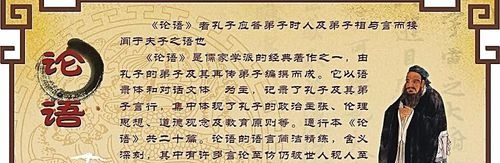 论
语
《论语》者孔子应答弟子时人及弟子相与言而接
闻于夫子之语也
《论语》是儒家学派的经典著作之一，由
孔子的弟子及其真传弟子编撰而成。它以语
录体和对话文体 为主，记录了孔子及其弟
子言行，集中体现了孔子的政治主张、伦理
思想、道德观念及教育原则等。通行本《论
语》共二十篇。论语的语言简洁精练，含义
深刻，其中有许多言论至今仍被世人视人至